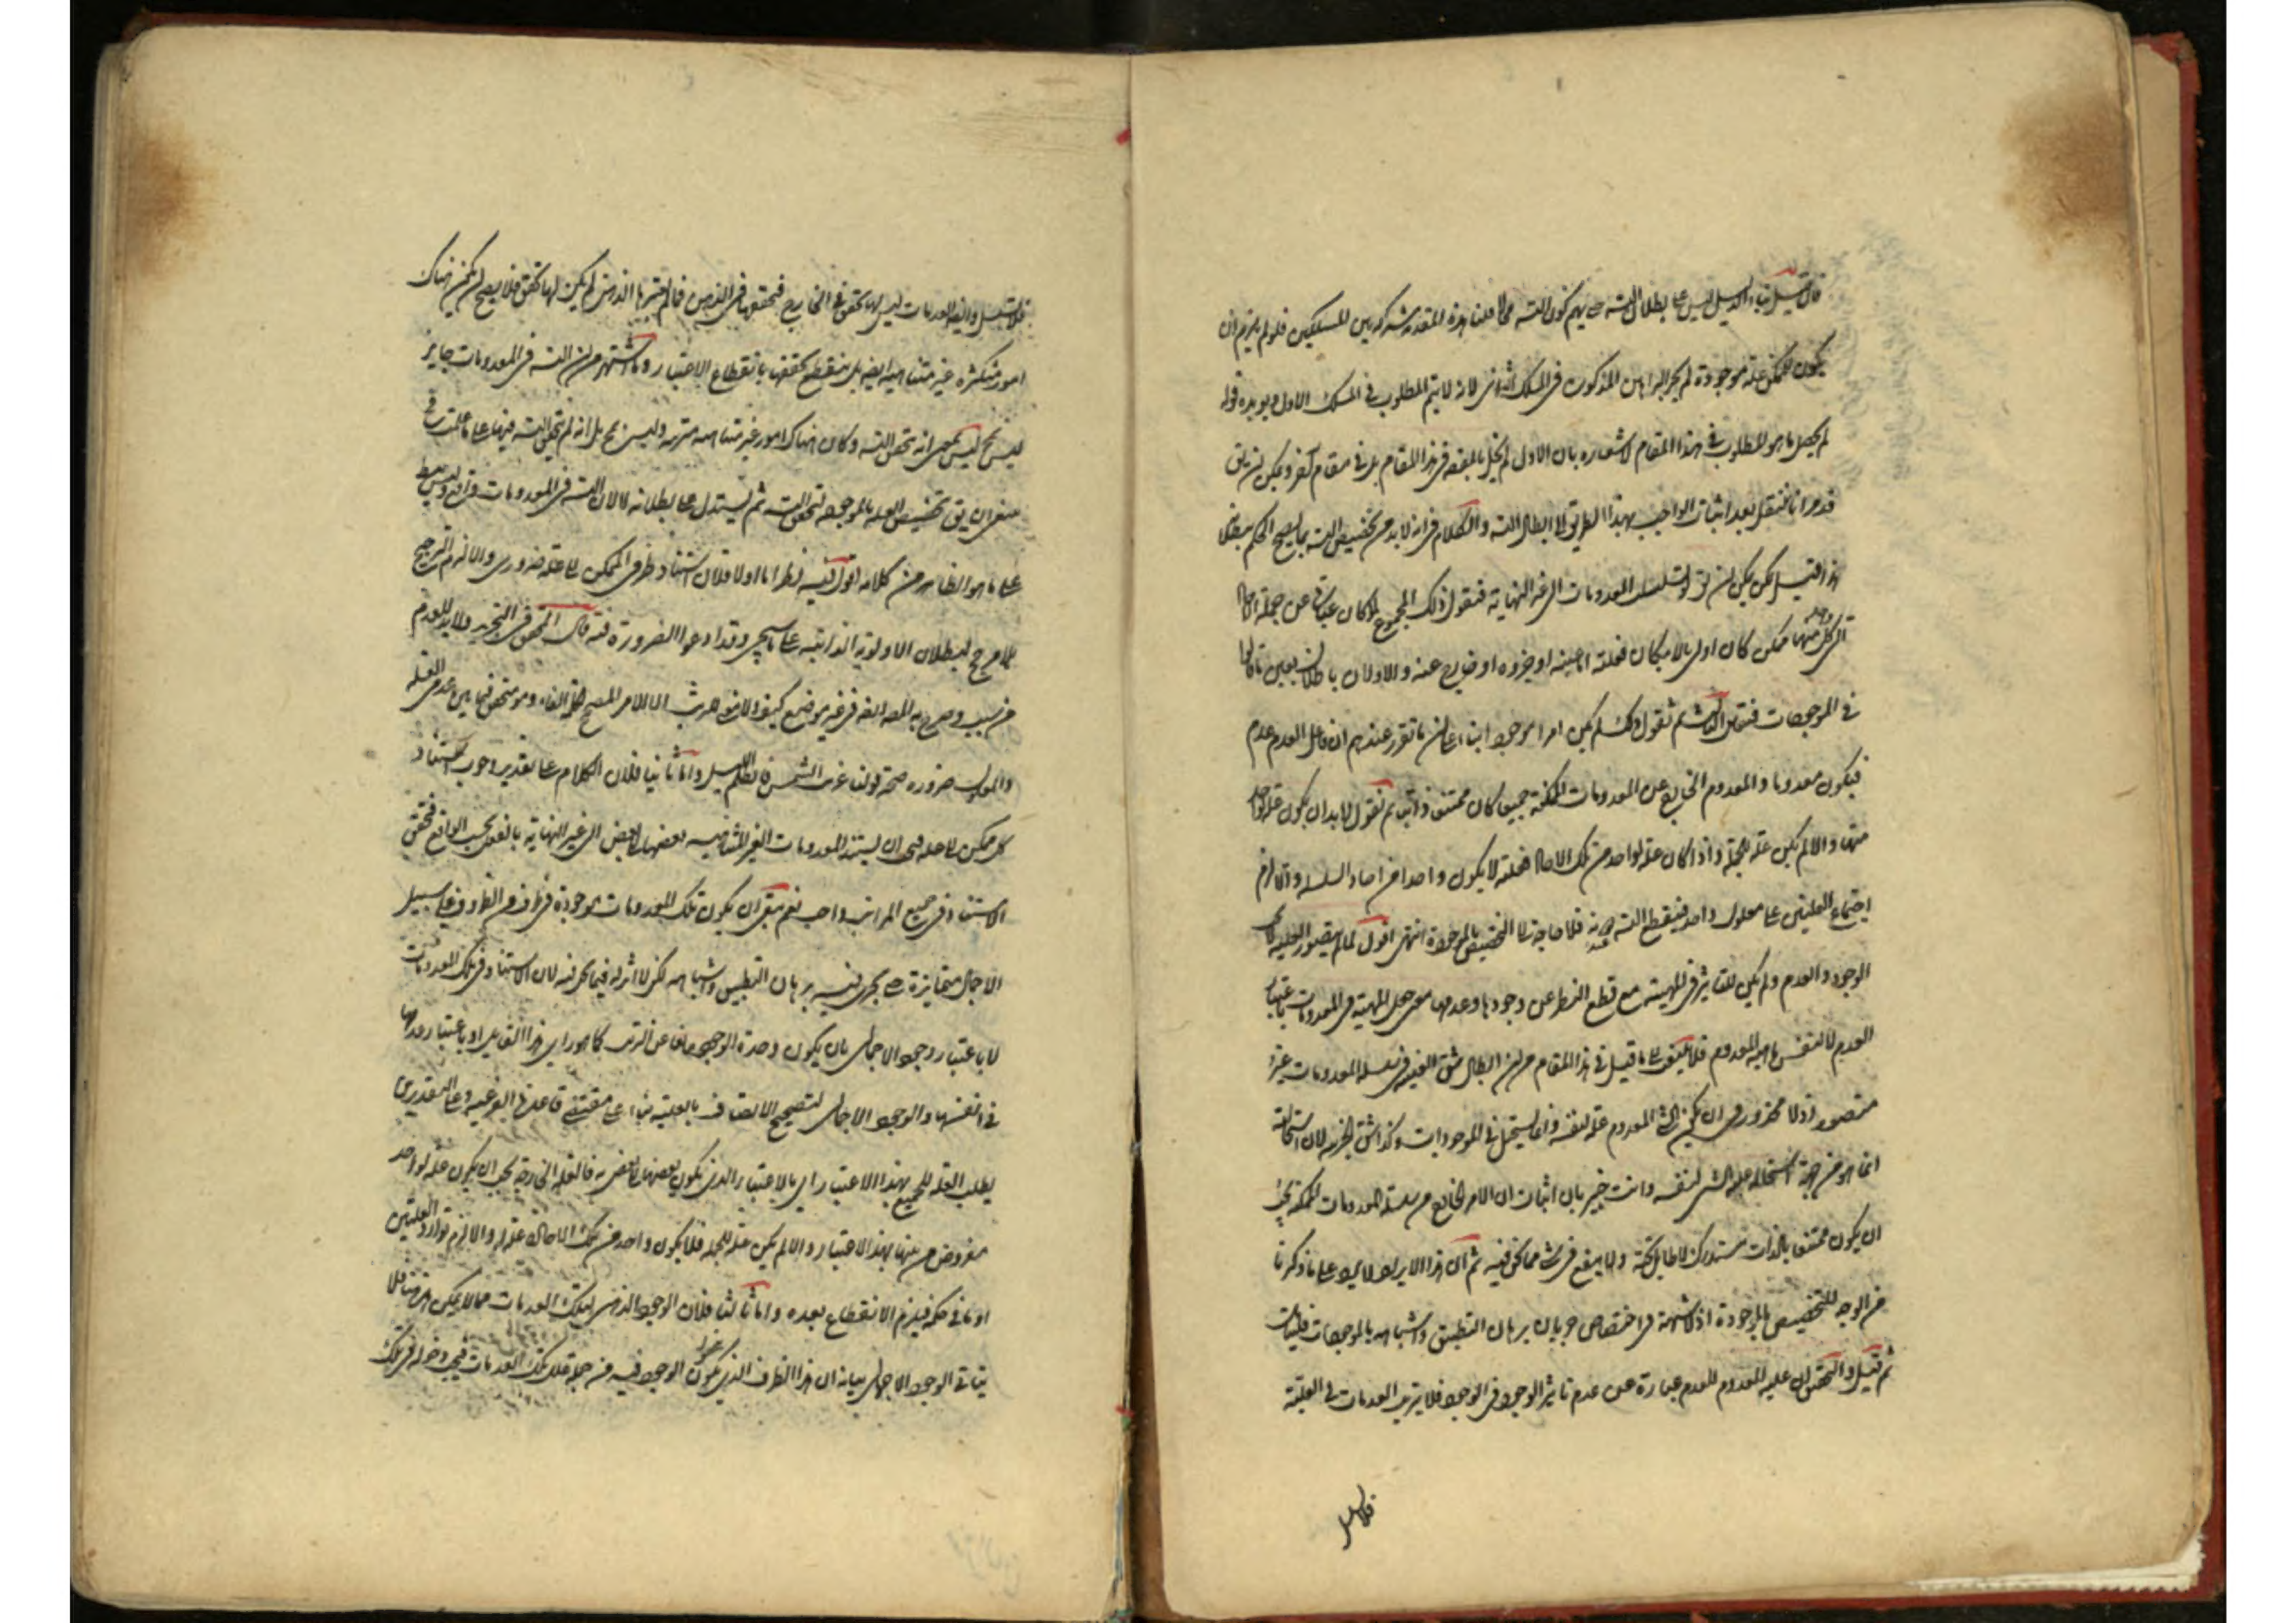 فان قيل بناء الدليل ليس على بطلان التسه حتى يهم كون التسه محالا قلنا هذه المقدمة مشتركة بين المسلكين فلو لم يلزم ان
يكون للممكن علة موجودة لم يجر البراهين المذكورة في المسلك الثاني لانه لا يتم المطلوب في المسلك الاول ويؤيده قوله
لم يحصل ما هو المطلوب في هذا المقام لاشعاره بان الاول لم يخل بالمقصد في هذا المقام بل في مقام آخر ويمكن ان يق
قد مر انا ننتقل بعد اثبات الواجب بهذا الطريق الى ابطال التسه والكلام في انه لابد من تخصيص التسه بما يصح الحكم ببطلا
هذا قيل لكن يمكن ان يق لو تسلسل المعدومات الى غير النهاية فنقول ذلك المجموع لما كان عبارة عن جملة الآحاد
التي كل واحد منها ممكن كان اولى بالامكان فعلته اما عينه او جزوه او خارج عنه والاولان باطلان بعين ما قالوا
في الموجودات فتعين الثالث ثم نقول ذلك لم يكن امرا موجودا بناء على ان ما تقرر عندهم ان فاعل العدم عدم
فيكون معدوما والمعدوم الخارج عن المعدومات الممكنة جميعا كان ممتنعا ذاتيا ثم نقول لابد ان يكون علة لواحد
منها والا لم يكن علة للجملة واذا كان علة لواحد من تلك الآحاد فعلته لا يكون واحدا من آحاد السلسلة والا لزم
اجتماع العلتين على معلول واحد فينقطع التسه فلا حاجة الى التخصيص بالموجودة انتهى اقول لما لم يتصور العلية الا في
الوجود والعدم ولم يكن للتاثير في المهية مع قطع النظر عن وجودها وعدمها معنى جعل المهية في المعدومات باعتبار
العدم لا لنفس ماهية المعدوم فلا يلتفت الى ما قيل في هذا المقام من ان ابطال شق العينية في سلسلة المعدومات غير
متصور اذ لا محذور في ان يكون الشئ المعدوم علة لنفسه وانما يستحيل في الموجودات وكذا شق الجزء لان استحالته
انما هو من جهة استحالة علية الشئ لنفسه وانت خبير بان اثبات ان الامر الخارج من سلسلة المعدومات الممكنة يجب
ان يكون ممتنعا بالذات مستدرك لا طائل تحته ولا ينفع في شئ مما نحن فيه ثم ان هذا الايراد لا يرد على ما ذكرنا
من الوجه للتخصيص بالموجودة اذ لا شبهة في اختصاص جريان برهان التطبيق واشباهه بالموجودات
ثم قيل والتحقيق ان علية المعدوم للعدم عبارة عن عدم تاثير الوجود في الوجود فلا يترتب العدمات في العلية
فلا تسلسل
فلا تسلسل وايضا العدمات ليس لها تحقق في الخارج فتحققها في الذهن فما لم يعتبرها الذهن لم يكن لها تحقق فلا يصح ان يكون هناك
امور متكثرة غير متناهية ايضا بل ينقطع تحققها بانقطاع الاعتبار وما اشتهر من ان التسه في المعدومات جايز
ليس بمعنى انه تحقق التسه وكان هناك امور غير متناهية مترتبة وليس بمح بل انه لم يتحقق التسه فيها على ما علمت
ان يق تخصيص العلة بالموجودة لتحقق التسه ثم يستدل على بطلانه لا لان التسه في المعدومات
على ما هو الظاهر من كلامه اقول فيه نظر اما اولا فلان استناد طرفي الممكن الى علة ضروري والا لزم الترجيح
بلا مرجح لبطلان الاولوية الذاتية على ما سيجئ وقد ادعوا الضرورة فيه قال المحقق في التجريد ولا بد للعدم
من سبب وصرح به المصه ايضا في غير موضع كيف
والمعلول ضرورة صحة قولنا غربت الشمس فاظلم الليل واما ثانيا فلان الكلام على تقدير وجوب استناد
كل ممكن الى علة فيجب ان يستند المعدومات الغير المتناهية بعضها الى بعض الى غير النهاية بالفعل بحسب الواقع فتحقق
الاستناد في جميع المراتب واجب نعم يبقى ان يكون تلك المعدومات موجودة في ظرف من الظروف على سبيل
الاجمال متمايزة حتى يجري فيه برهان التطبيق واشباهه لكن لا اثر له فيما نحن فيه لان الاستناد في تلك المعدومات
لا باعتبار وجود الاجمالي بان يكون وحدة الوجود مانعا عن الترتب كما هو راي هذا القايل او باعتبار عدمها
في انفسها والوجود الاجمالي لتصحيح الاتصاف بالعلية بناء على مقتضى قاعدة الفرعية وعلى التقديرين
يطلب العلة للجميع بهذا الاعتبار اي بالاعتبار الذي يكون بعضها لبعض به فالعلة الخارجة يجب ان يكون علة لواحد
مفروض منها بهذا الاعتبار والا لم يكن علة للجملة فلا يكون واحد من تلك الآحاد علة له والا لزم توارد العلتين
او ما في حكمه فيلزم الانقطاع بعده واما ثالثا فلان الوجود الذهني لتلك العدمات مما لا يمكن
الوجود الاجمالي بيانه ان هذا الظرف الذي يكون الوجود فيه من جملة تلك العدمات فيجب دخوله في تلك